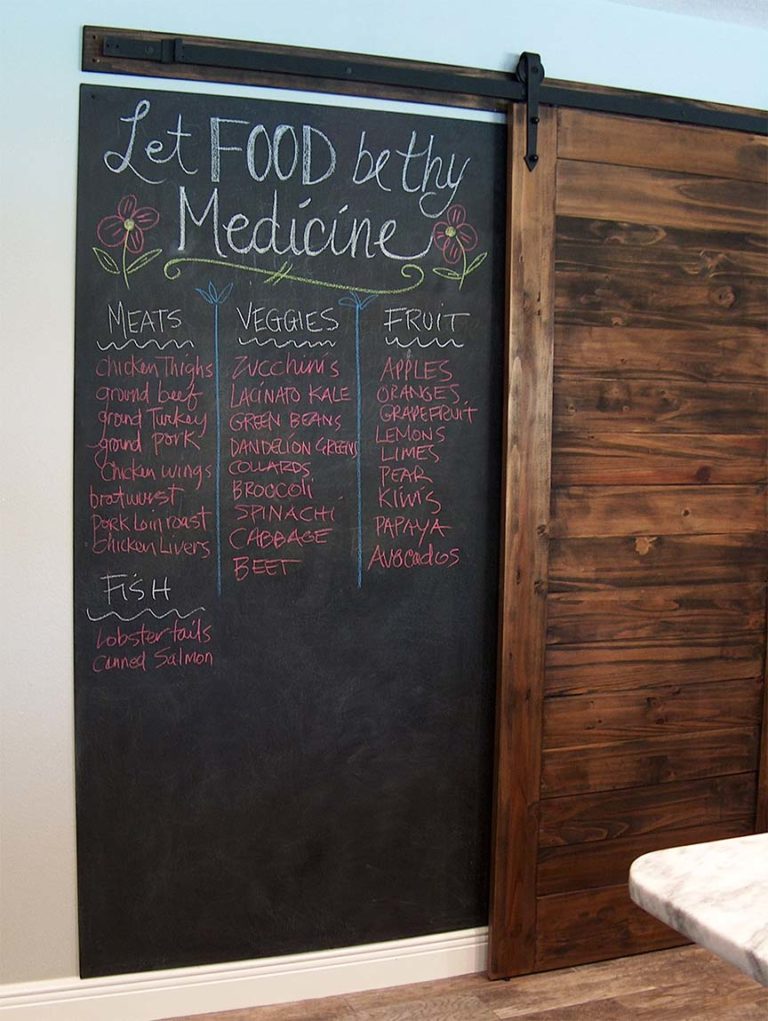 Let FOOD be thy
Medicine
MEATS
chicken Thighs
ground beef
ground Turkey
ground pork
Chicken wings
bratwurst
Pork Loin roast
Chicken Livers
FiSH
Lobster tails
Canned Salmon
VEGGIES
Zucchini's
LACINATO KALE
GREEN BEANS
DANDELION GREENS
COLLARDS
BROCCOLI
SPINACH
CABBAGE
BEET
FRUIT
APPLES
ORANGES
GRAPEFRUIT
LEMONS
LIMES
PEAR
KIWI'S
PAPAYA
AVOCADOS